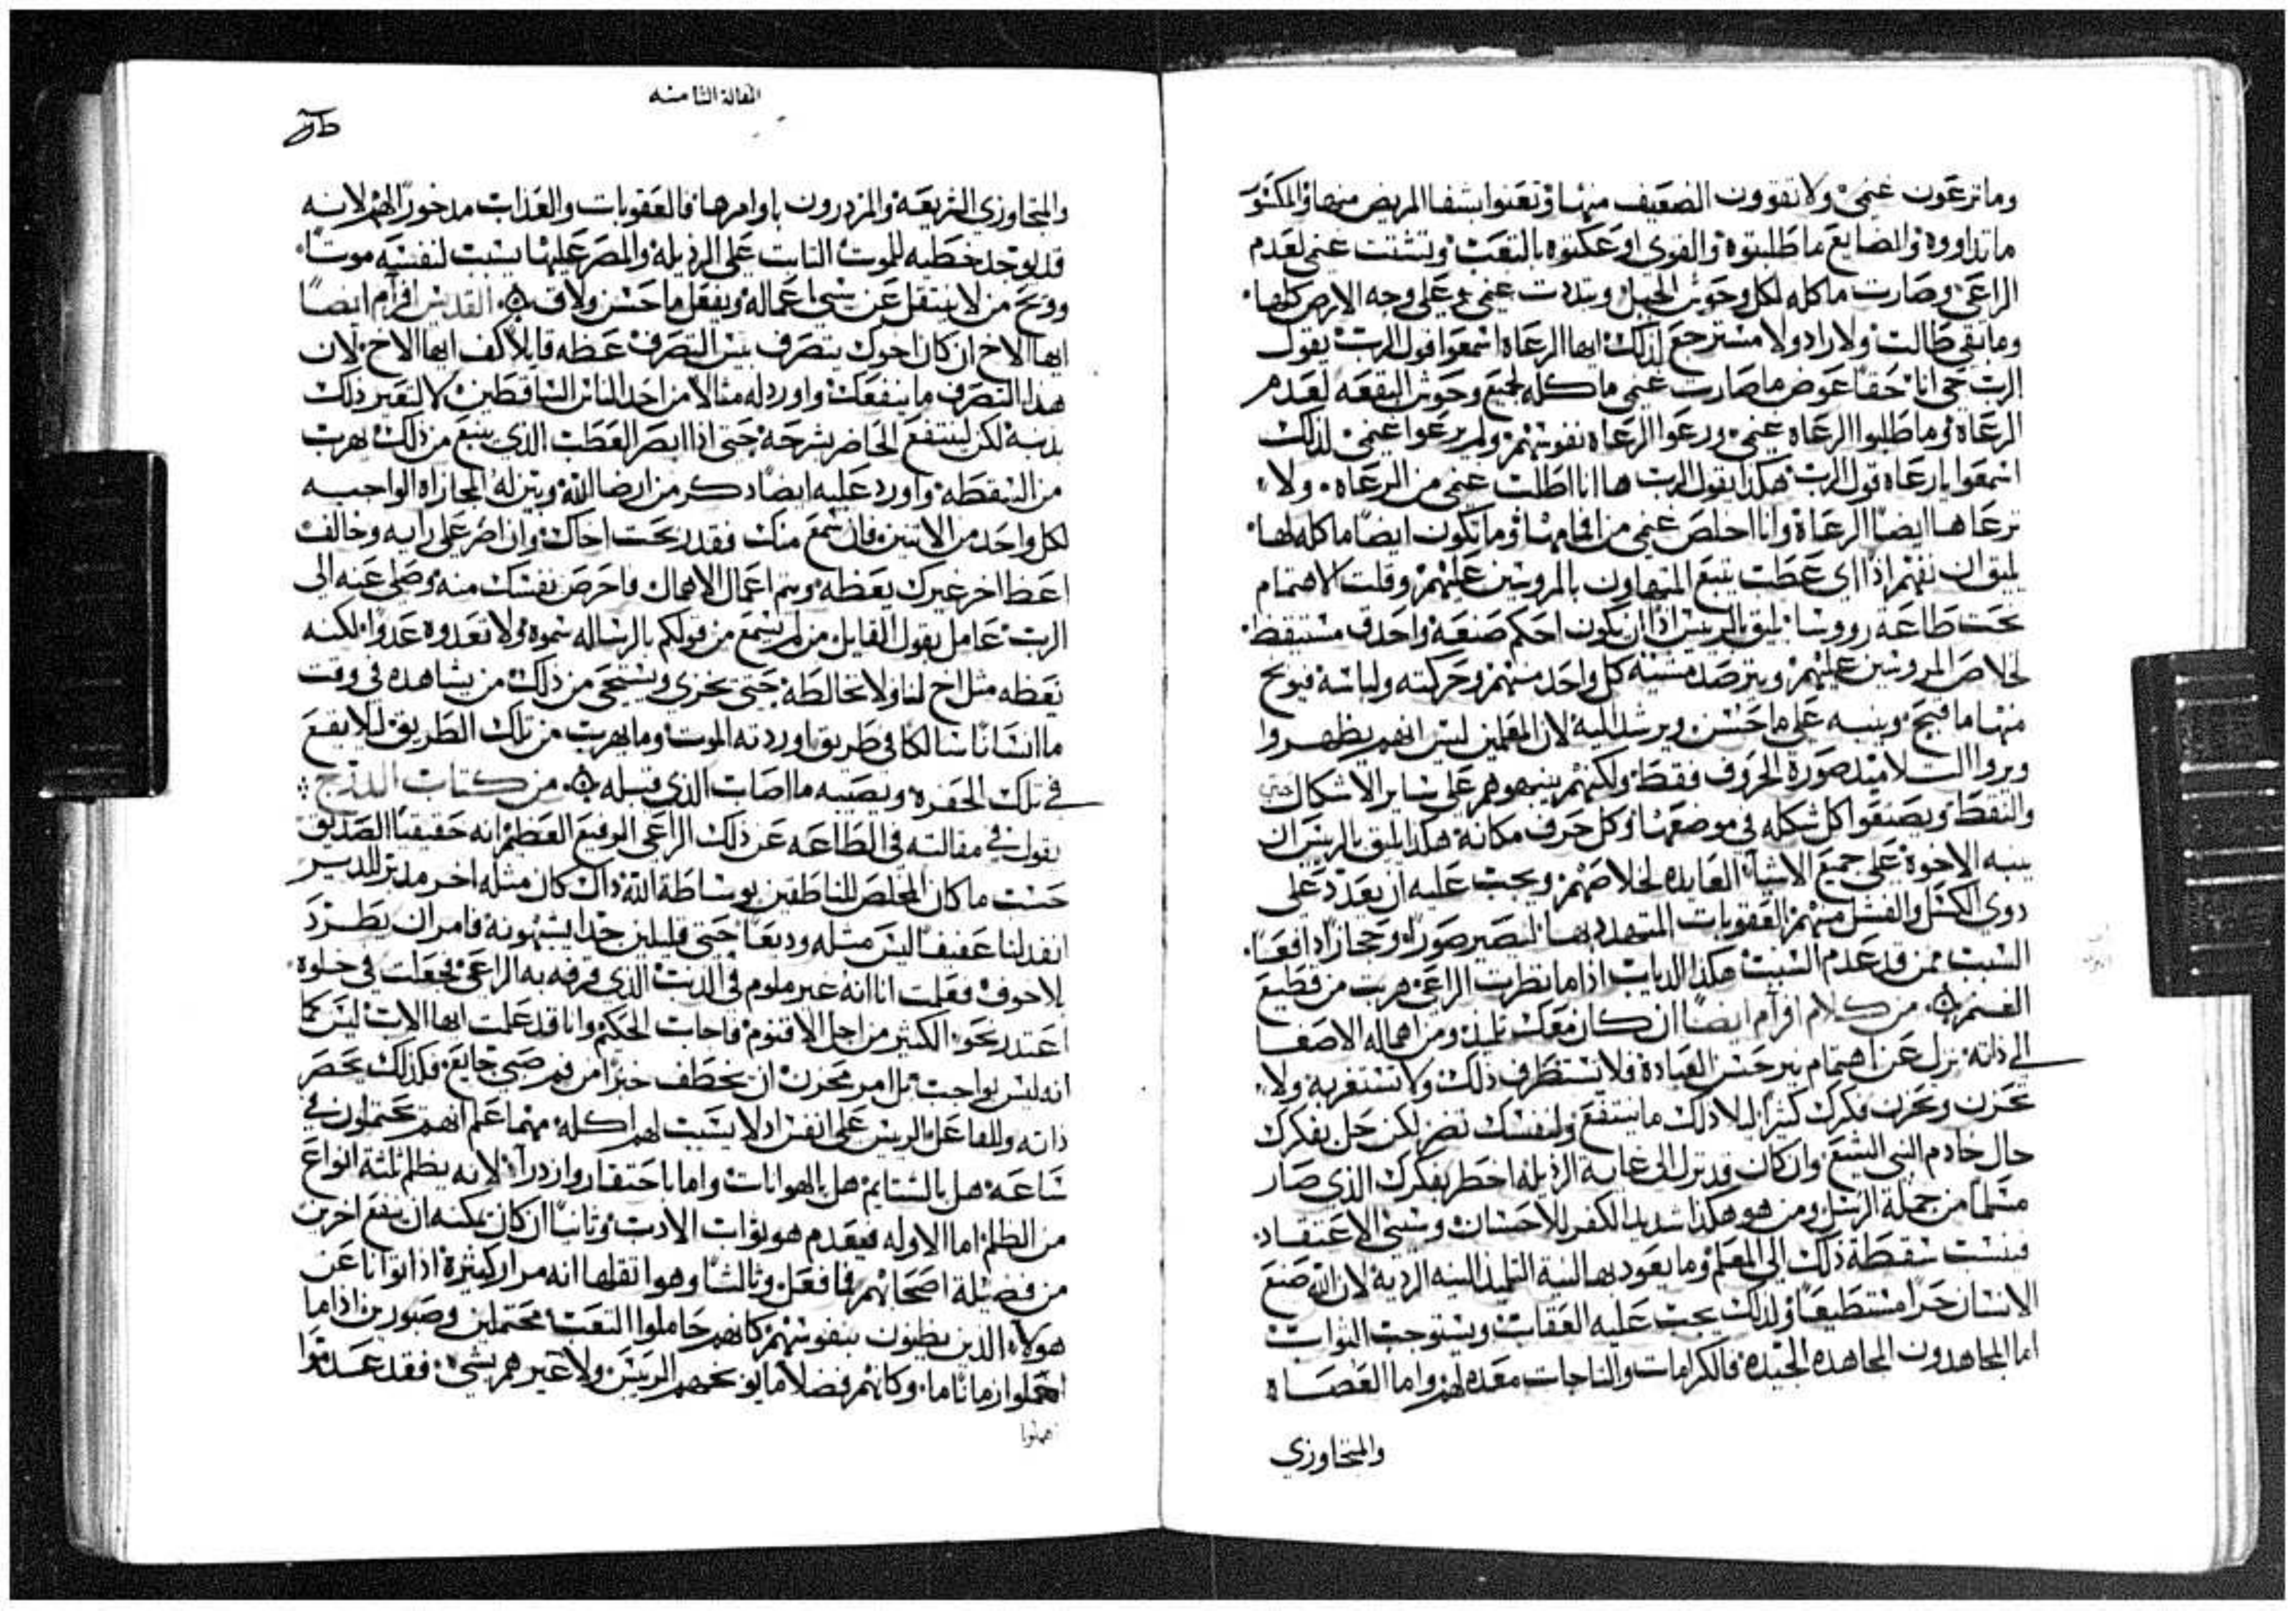 وما ترعون غنمي ولا تقوون الضعيف منها وتعنوا بشفا المريض منها والمكسور
ما تداووه والضايع ما طلبتوه والقوي اوعكتوه بالتعب وتشتت غنمي لعدم
الراعي وصارت ماكله لكل وحوش الجبل وتبددت غنمي على وجه الارض كلها
وما بقي طالب ولا راد ولا مسترجع لذلك ايها الرعاه اسمعوا قول الرب يقول
الرب حي انا حقا عوض ما صارت غنمي ماكله لجميع وحوش البقعه لعدم
الرعاه وما طلبوا الرعاه غنمي ورعوا الرعاه نفوسهم ولم يرعوا غنمي لذلك
اسمعوا يا رعاه قول الرب هكذا يقول الرب ها انا اطلب غنمي من الرعاه ولا
ترعاها ايضا الرعاه وانا اخلص غنمي من افامها وما تكون ايضا ماكله لها
يليق ان نفهم اذا اي عطب يتبع المتهاون بالمروسين عليهم وقلت الاهتمام
تحت طاعة رووسا يليق بالريس اذا ان يكون احكم صنعة واحدق مستيقظ
لخلاص المروسين عليهم ويترصد مشية كل واحد منهم وحركته ولباسه فيوبخ
منها ما قبح وينبه على ما حسن ويرشد اليه لان المعلمين ليس انهم يظهروا
ويروا التلاميد صورة الحروف فقط ولكنهم ينبهوهم على ساير الاشكال حتى
والنقط ويضعوا كل شكله في موضعها وكل حرف مكانه هكذا يليق بالريس ان
ينبه الاخوة على جميع الاشيآ العايده لخلاصهم ويجب عليه ان يعدد على
دوي الكسل والفشل منهم العقوبات المتهدد بها ليصير صورًا وحجازًا دافعا
السبب ممن قد عدم السبب هكذا الدياب اذا ما نظرت الراعي هربت من قطيع
الغنم من كلام افرآم ايضا ان كان معك تلميذ ومن اهماله الاصغا
الى ذاته نزل عن اهتمام بير حسن العبادة فلا تستظرف ذلك ولا تستغربه ولا
تحزن وتحرن فكرك كثيرا ليلا ذلك ما ينتفع ولنفسك تضر لكن جل بفكرك
حال خادم النبي اليشع وان كان قد نزل الى غاية الرذيله اخطر بفكرك الذي صار
مسلما من جملة الرسل ومن هو هكذا شديد الكفر للاحسان وسيئ الاعتقاد
فينسب سقطة ذلك الى المعلم وما يعود بها لسية التلميذ السيه الرديه لان الله صنع
الانسان حرا مستطيعا ولذلك يجب عليه العقاب ويستوجب الثواب
اما المجاهدون المجاهده الجيده فالكرامات والتاجات معده لهم واما العصاه
والمتجاوزي
المقالة الثامنه
والمتجاوزي الشريعه والمزدرون باوامرها فالعقوبات والعذاب مدخور لهم لانه
قد يوجد خطيه للموت الثابت على الرذيله والمصر عليها يسبب لنفسه موتا
وويح من لا ينتقل عن سيئ اعماله ويفعل ما حسن ولاق القديس افرآم ايضا
ايها الاخ ان كان اخوك يتصرف بيس التصرف عظه قايلا كف ايها الاخ لان
هذا التصرف ما ينفعك واورد له مثالا من احد الناس الساقطين لا لتعير ذلك
بدنبه لكن لينتفع الحاضر بشرحه حتى اذا ابصر العطب الذي يتبع من ذلك يهرب
من السقطه واورد عليه ايضا دكر من ارضا الله وينزله المجازاه الواجبه
لكل واحد من الاتنين فان سمع منك فقد ربحت اخاك وان اصر على رايه وخالف
اعط اخر غيرك يعظه ويتم اعمال الاهمال فاحرص نفسك منه وصلي عنه الى
الرب عامل بقول القايل من لم يسمع من قولكم بالرساله سموه ولا تعدوه عدوا لكنه
نعظه مثل اخ لنا ولا تخالطه حتى يخزى ويستحي من ذلك من يشاهده في وقت
ما انسانا سالكا في طريق اوردته الموت وما يهرب من تلك الطريق ليلا يقع
في تلك الحفره ويصيبه ما اصاب الذي قبله من كتاب الدرج
يقول في مقالته في الطاعه عن ذلك الراعي الوقيع العظيم انه حقيقيا الصديق
حسب ما كان المخلص للناطقين بوساطة الله ذاك كان مثله اخر مدبر للدير
انفد لنا عفيفا ليس مثله وديعا حتى قليلين جدا يشبهونه فامر ان يطرد
بلا خوف فعلمت انا انه غير ملوم في الدنب الذي قرفه به الراعي فجعلت في خلوه
اعتدر نحو الكثير من اجل الاقنوم فاجاب الحكيم وانا قد علمت ايها الاب ليس كما
انه ليس بواجب بل امر محزن ان يخطف خبزا من فم صبي جايع فكذلك يخصر
ذاته وللفاعل الريس على انفس اد لا يسبب لهم اكله مهما علم انهم يحتملون في
ساعه هل بالشتايم هل بالهوانات واما باحتقار وازدرآ لانه يظلم ثلثة انواع
من الظلم اما الاوله فيعدم هو ثواب الادب وثانيا ان كان يمكنه ان ينفع اخرين
من فضيلة اصحابهم فما فعل وثالثا وهو اثقلها انه مرار كثيرة اذا توانا عن
هولاء الذين يظنون بنفوسهم كانهم حاملوا التعب محتملين وصبورين اذا ما
اهملوا زمانا ما وكانهم فضلا ما يوبخهم الريس ولا غيرهم بشي فقد عدموا
اهملوا